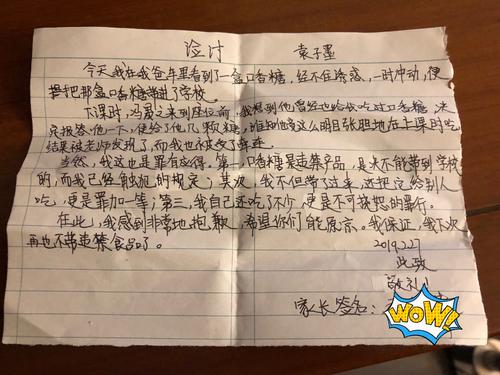 检讨 袁子墨
今天我在我爸车里看到了一盒口香糖，经不住诱惑，一时冲动，便
把那盒口香糖带进了学校。
下课时，冯晨之来到座位前，我想到他曾经也给我吃过口香糖，决
定报答他一下，便给了他几颗糖，谁知他这么明目张胆地在上课时吃
结果被老师发现了，而我也被牵连
当然，我这也是罪有应得。第一，口香糖是违禁产品，是不能带到学校
的，而我已经触犯的规定；其次，我不但带了过来，还把它给别人
吃，更是罪加一等；第三，我自己还吃了不少，更是不可挽恕的罪行。
在此，我感到非常地抱歉，希望你们能原谅。我保证，我下次
再也不带违禁食品了。
2019.2.27
此致
敬礼！
家长签名：
WOW!